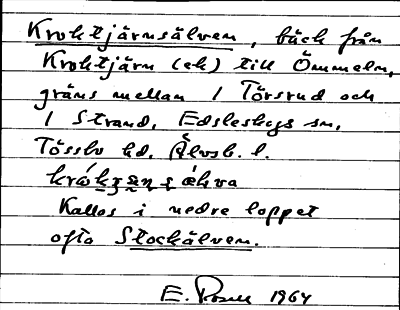 Kroktjärnsälven, bäck från
Kroktjärn (ek) till Ömmeln,
gräns mellan 1 Törsrud och
1 Strand, Edsleskogs sn,
Tössbo hd, Älvsb. l.
Kallas i nedre loppet
ofta Stockälven.
E. 1964